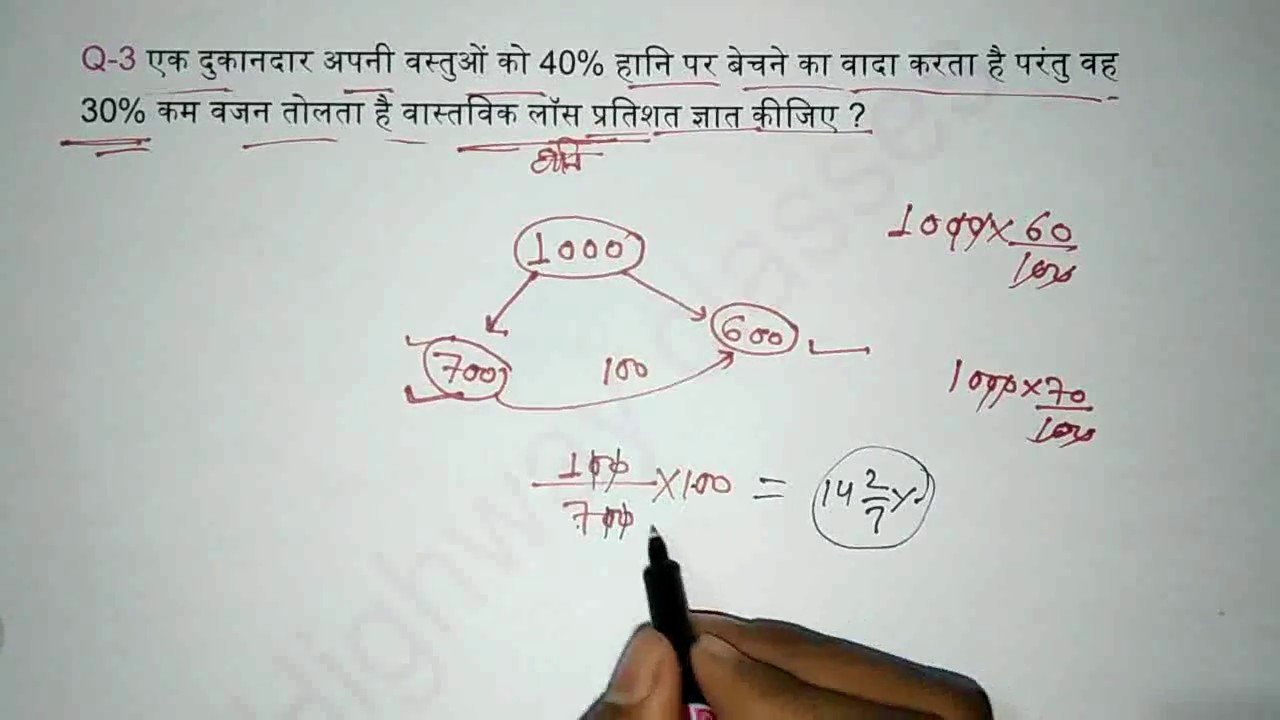 Q-3 एक दुकानदार अपनी वस्तुओं को 40% हानि पर बेचने का वादा करता है परंतु वह
30% कम वजन तोलता है वास्तविक लॉस प्रतिशत ज्ञात कीजिए ?
हानि
1000
1000 × 60/100
600
700
100
1000 × 70/100
100/700 × 100 = 14 2/7 %